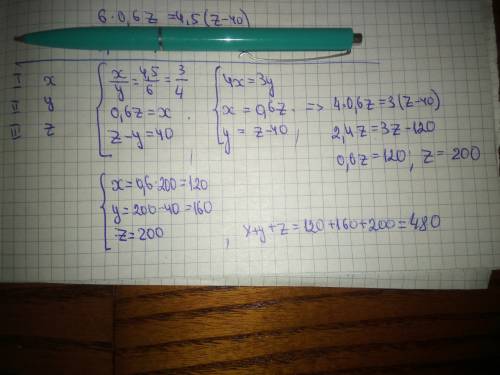 6·0,6z = 4,5(z-40)
I x
II y
III z
x/y = 4,5/6 = 3/4
0,6z = x
z - y = 40 ,
4x = 3y
x = 0,6z
y = z - 40 ,
=> 4·0,6z = 3(z-40)
2,4z = 3z - 120
0,6z = 120; z = 200
x = 0,6·200 = 120
y = 200 - 40 = 160
z = 200 ,
x+y+z = 120+160+200 = 480